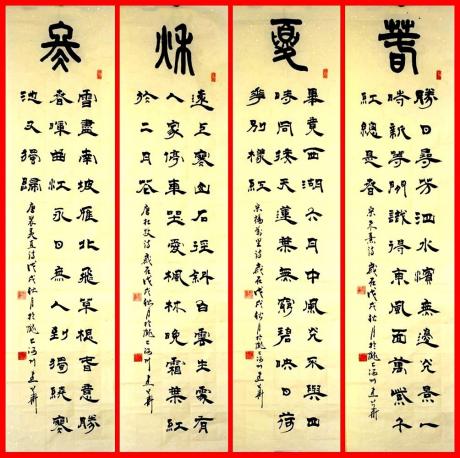 春
勝日尋芳泗水濱無邊光景一
時新等閒識得東風面萬紫千
紅總是春
宋朱熹詩 歲在戊戌秋月於隴上河州
夏
畢竟西湖六月中風光不與四
時同接天蓮葉無窮碧映日荷
華別樣紅
宋楊萬里詩 歲在戊戌秋月於隴上河州
秋
遠上寒山石徑斜白雲生處有
人家停車坐愛楓林晚霜葉紅
於二月花
唐杜牧詩 歲在戊戌秋月於隴上河州
冬
雪盡南坡雁北飛草根春意勝
春暉曲江永日無人到獨繞寒
池又獨歸
唐裴夷直詩 戊戌秋月於隴上河州